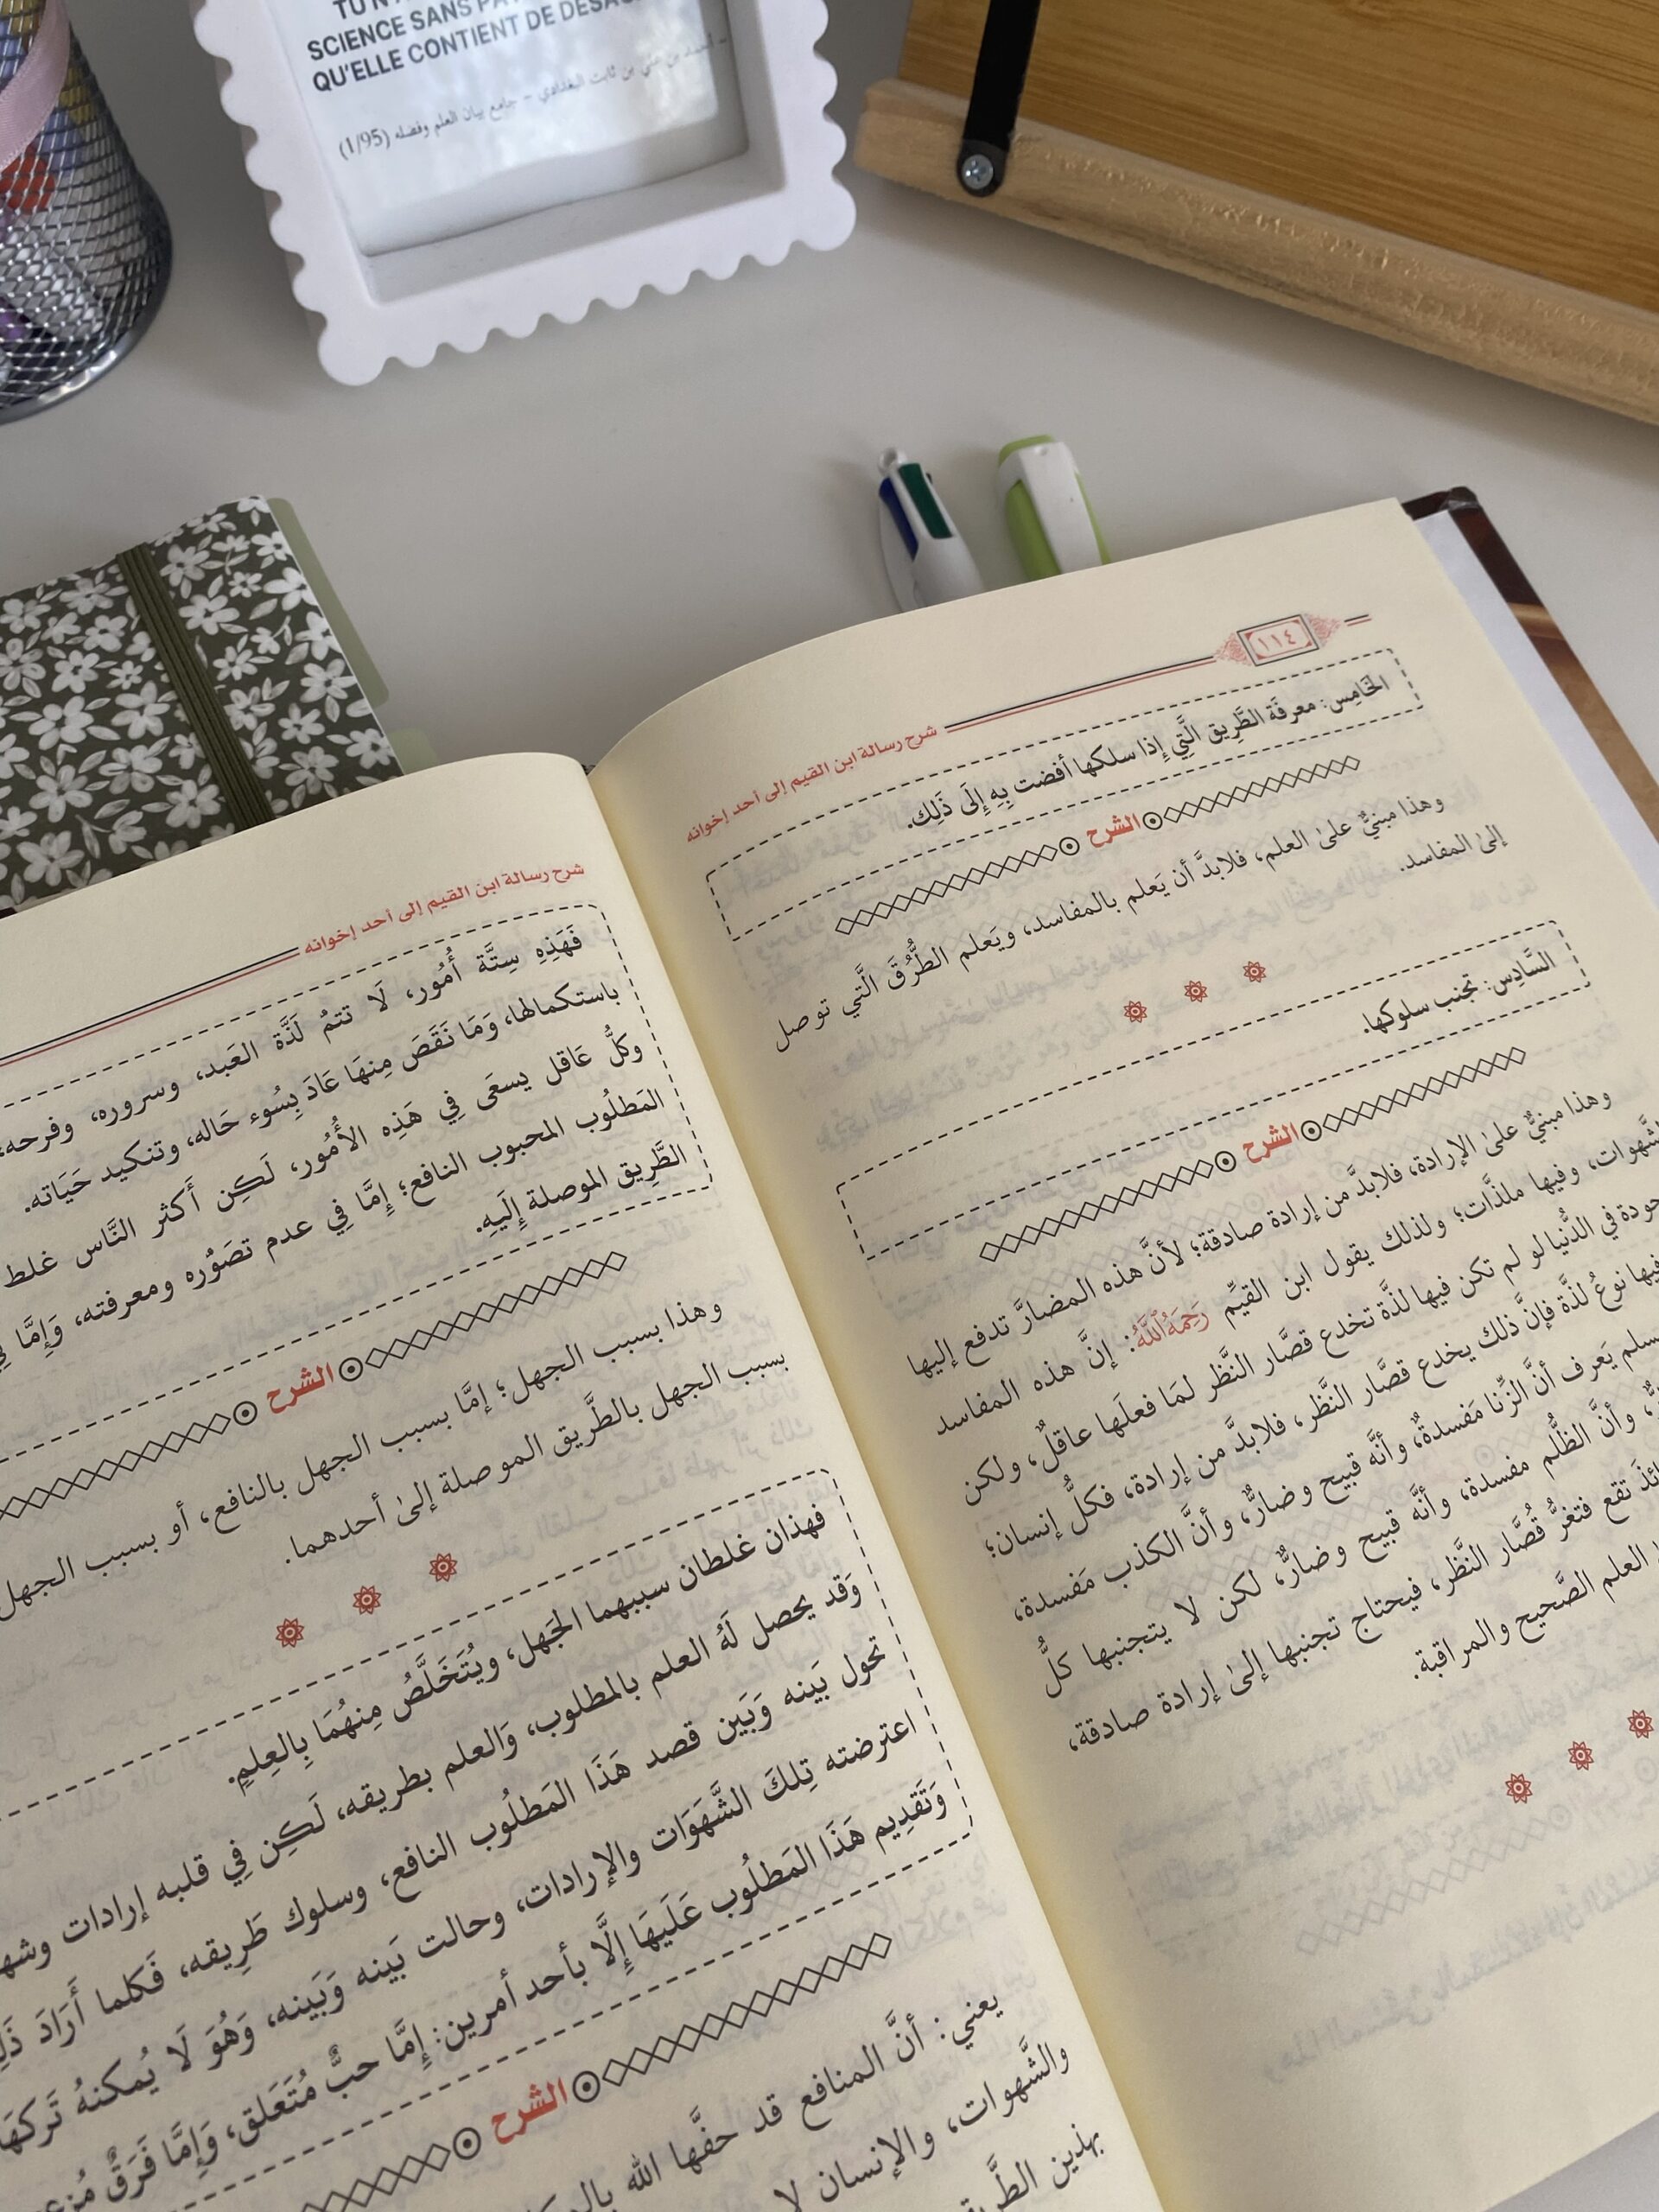 SCIENCE SANS
QU'ELLE CONTIENT DE
بن علي بن ثابت البغدادي - جامع بيان العلم وفضله (1/95)
١١٤
شرح رسالة ابن القيم إلى أحد إخوانه
الخَامِس: معرفَة الطَّرِيق الَّتِي إِذا سلكها أفضت بِهِ إِلَى ذَلِك.
الشرح
وهذا مبنيٌّ علىٰ العلم، فلابدَّ أن يَعلم بالمفاسد، ويَعلم الطُّرُقَ الَّتي توصل
إلىٰ المفاسد.
السَّادِس: تجنب سلوكها.
الشرح
وهذا مبنيٌّ علىٰ الإرادة، فلابدَّ من إرادة صادقة؛ لأنَّ هذه المضارَّ تدفع إليها
وفيها ملذَّات؛ ولذلك يقول ابن القيِّم رَحِمَهُ ٱللَّهُ: إنَّ هذه المفاسد
في الدُّنيا لو لم تكن فيها لذَّة تخدع قصَّار النَّظر لمَا فعلَها عاقلٌ، ولكن
فيها نوعُ لذَّة فإنَّ ذلك يخدع قصَّار النَّظر، فلابدَّ من إرادة، فكلُّ إنسان؛
يَعرف أنَّ الزِّنا مَفسدةٌ، وأنَّه قبيح وضارٌّ، وأنَّ الكذب مَفسدة،
وأنَّ الظُّلم مفسدة، وأنَّه قبيح وضارٌّ، لكن لا يتجنبها كلُّ
تقع فتغرُّ قُصَّار النَّظر، فيحتاج تجنبها إلىٰ إرادة صادقة،
العلم الصَّحيح والمراقبة.
شرح رسالة ابن القيم إلى أحد إخوانه
فَهَذِهِ سِتَّة أُمُور، لَا تتمُّ لَذَّة العَبد، وسروره، وفرحه،
باستكمالها، وَمَا نَقَصَ مِنهَا عَادَ بِسُوء حَاله، وتنكيد حَيَاته.
وكلُّ عَاقل يسعَى فِي هَذِه الأُمُور، لَكِن أَكثر النَّاس غلط
المَطلُوب المحبوب النافع؛ إِمَّا فِي عدم تصَوُره ومعرفته، وَإِمَّا
الطَّرِيق الموصلة إِلَيهِ.
الشرح
وهذا بسبب الجهل؛ إمَّا بسبب الجهل بالنافع، أو بسبب الجهل
بسبب الجهل بالطَّريق الموصلة إلىٰ أحدهما.
فهذان غلطان سببهما الجَهل، ويُتَخَلَّصُ مِنهُمَا بِالعِلمِ.
وَقد يحصل لَهُ العلم بالمطلوب، وَالعلم بطريقه، لَكِن فِي قلبه إرادات
تحول بَينه وَبَين قصد هَذَا المَطلُوب النافع، وسلوك طَرِيقه، فَكلما أَرَادَ
اعترضته تِلكَ الشَّهَوَات والإرادات، وحالت بَينه وَبَينه، وَهُوَ لَا يُمكنهُ تَركهَا
وَتَقدِيم هَذَا المَطلُوب عَلَيهَا إِلَّا بأحد أمرين: إِمَّا حبٌّ مُتَعَلق، وَإِمَّا فَرَقٌ
الشرح
يعني: أنَّ المنافع قد حفَّها الله
والشَّهوات، والإنسان لا
بهذين